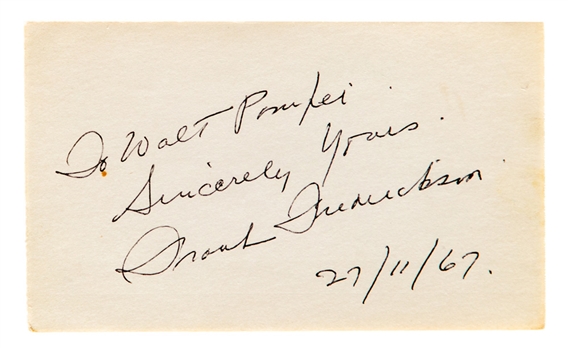 To Walt Pompei.
Sincerely Yours.
Frank Fredrickson
27/11/67.